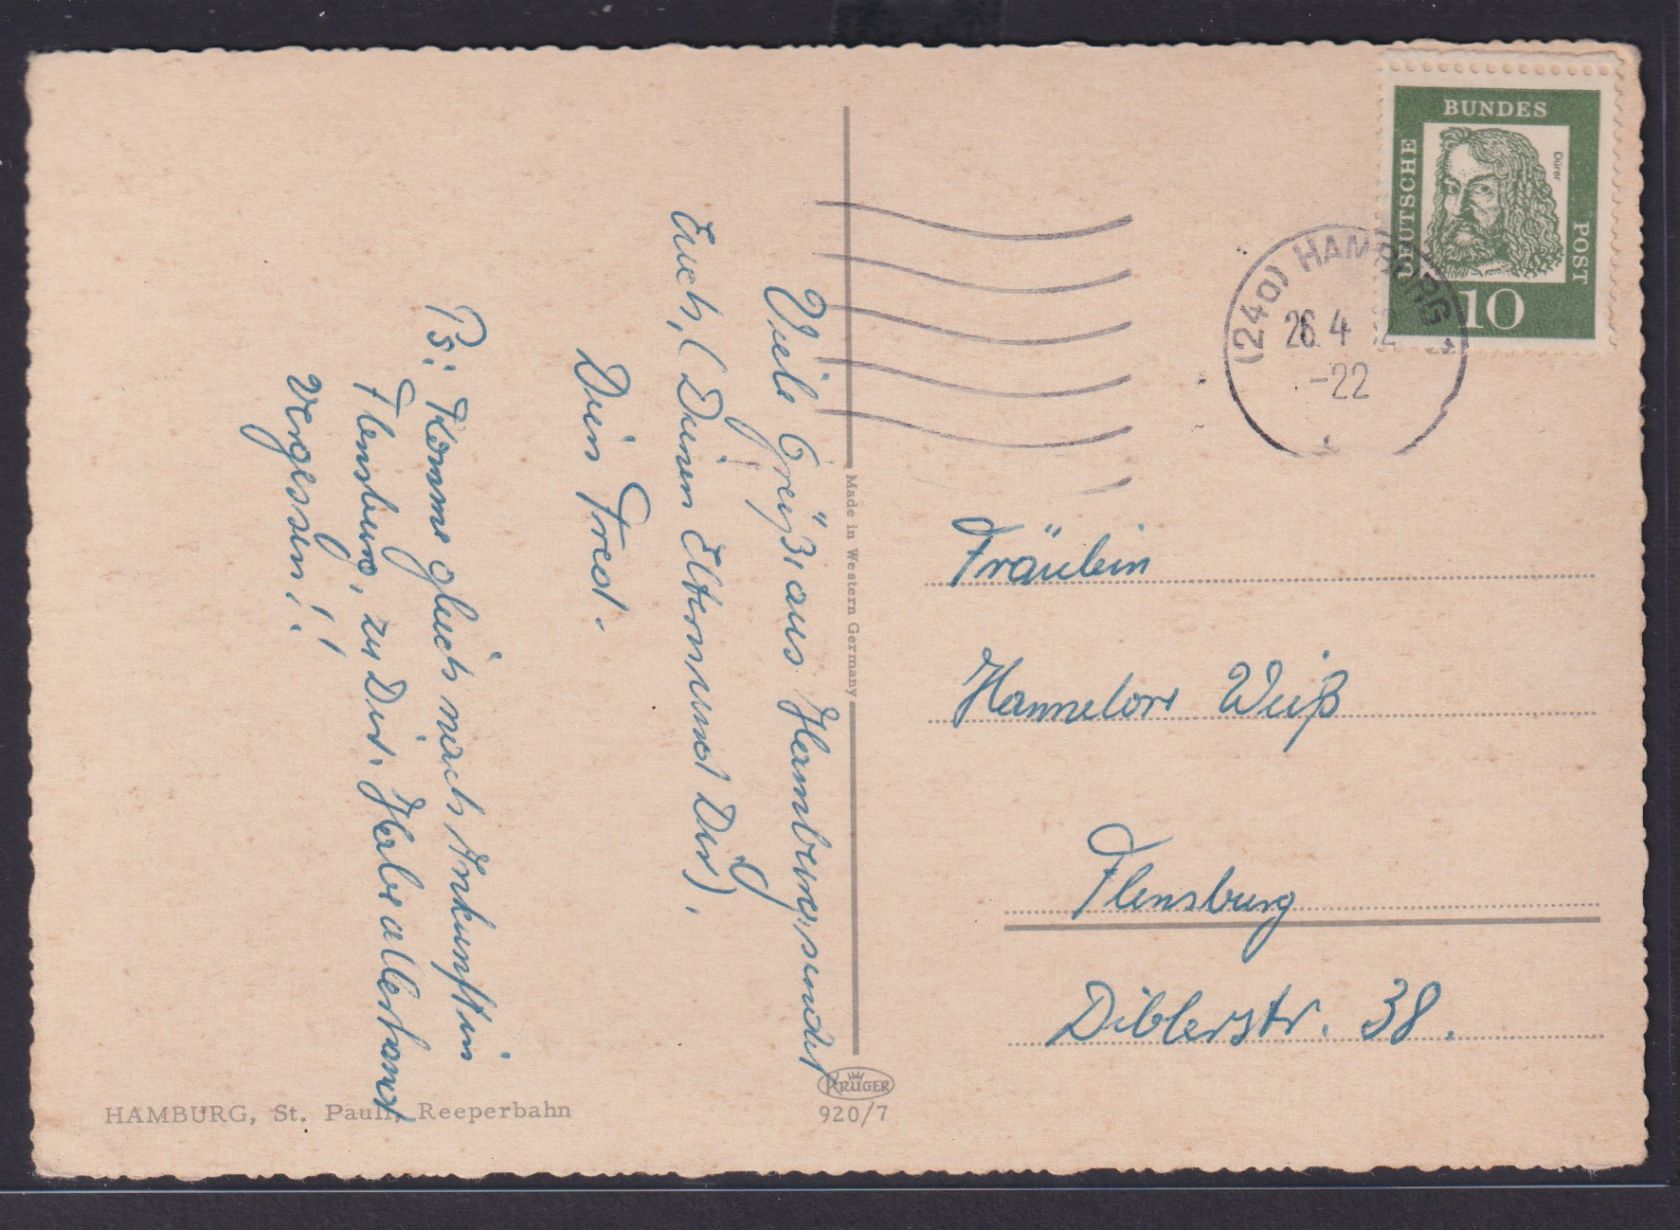 Viele Grüße aus Hamburg, sendet
Euch, (Deinen Eltern und Dir).
Dein Fred.
Ps: Komme gleich nach Ankunft in
Flensburg, zu Dir. Habe allerhand
vergessen!!
HAMBURG, St. Pauli, Reeperbahn
Made in Western Germany
KRÜGER
920/7
DEUTSCHE BUNDES POST
Dürer
10
(24a) HAMBURG
26.4
-22
Fräulein
Hannelore Weiß
Flensburg
Diblerstr. 38.